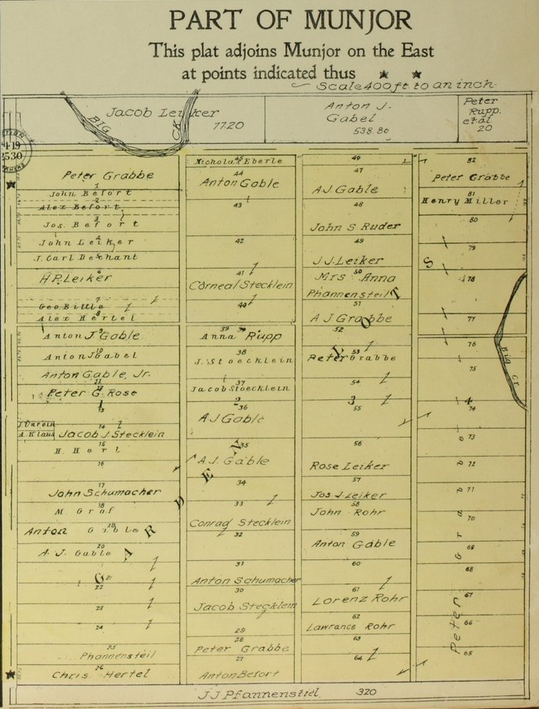 PART OF MUNJOR
This plat adjoins Munjor on the East
at points indicated thus ★ ★
Scale 400 ft to an inch
Jacob Leiker
77.20
BIG
CK
Anton J.
Gabel
538.80
Peter
Rupp.
et al
20
Peter Grabbe
1
John Befort
2
Alex Befort
3
Jos. Befort
4
John Leiker
J. Carl Dechant
6
H.P. Leiker
7
Geo Billie
8
Alex Hertel
Anton J Gable
10
Anton J Gabel
Anton Gable, Jr.
Peter G Rose
14
A. Klaus
Jacob J. Stecklein
15
H Herl
16
17
John Schumacher
18
M Graf
Anton Gable
20
A. J. Gable
22
23
24
25
Phannensteil
26
Chris Hertel
Nicholas Eberle
44
Anton Gable
43
42
41
Corneal Stecklein
40
39
Anna Rupp
38
J. Stoecklein
37
Jacob Stoecklein
36
A J Gable
35
A. J. Gable
34
33
Conrad Stecklein
32
31
Anton Schumacher
30
Jacob Stecklein
29
28
Peter Grabbe
27
Anton Befort
47
A J Gable
48
John S Ruder
49
J. J. Leiker
50
Mrs Anna
Phannensteil
51
A J Grabbe
52
53
Peter Grabbe
54
55
56
Rose Leiker
57
Jos J Leiker
58
John Rohr
59
Anton Gable
60
61
Lorenz Rohr
62
Lawrance Rohr
63
64
82
Peter Grabbe
81
Henry Miller
80
79
78
77
76
75
74
73
72
71
70
69
68
67
66
65
Peter Graf
BIG CR
GARDEN
LOTS
1 2 3 4
J J Pfannenstiel 320